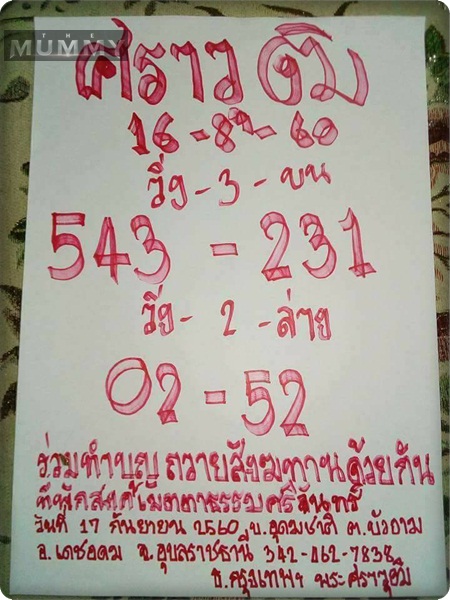 THE
MUMMY
ศราวุฒิ
16-82-60
วิ่ง-3-บน
543-231
วิ่ง-2-ล่าง
02-52
ร่วมทำบุญ ถวายสังฆทานด้วยกัน
ที่พักสงฆ์เมตตาธรรมศรีจันทร์
วันที่ 17 กันยายน 2560 บ.อุดมชาติ ต.บัวงาม
อ.เดชอุดม จ.อุบลราชธานี 342-062-7838
ธ.กรุงเทพฯ พระศราวุฒิ